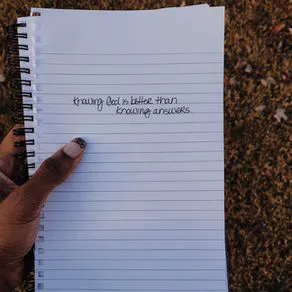 Knowing God is better than
Knowing answers.